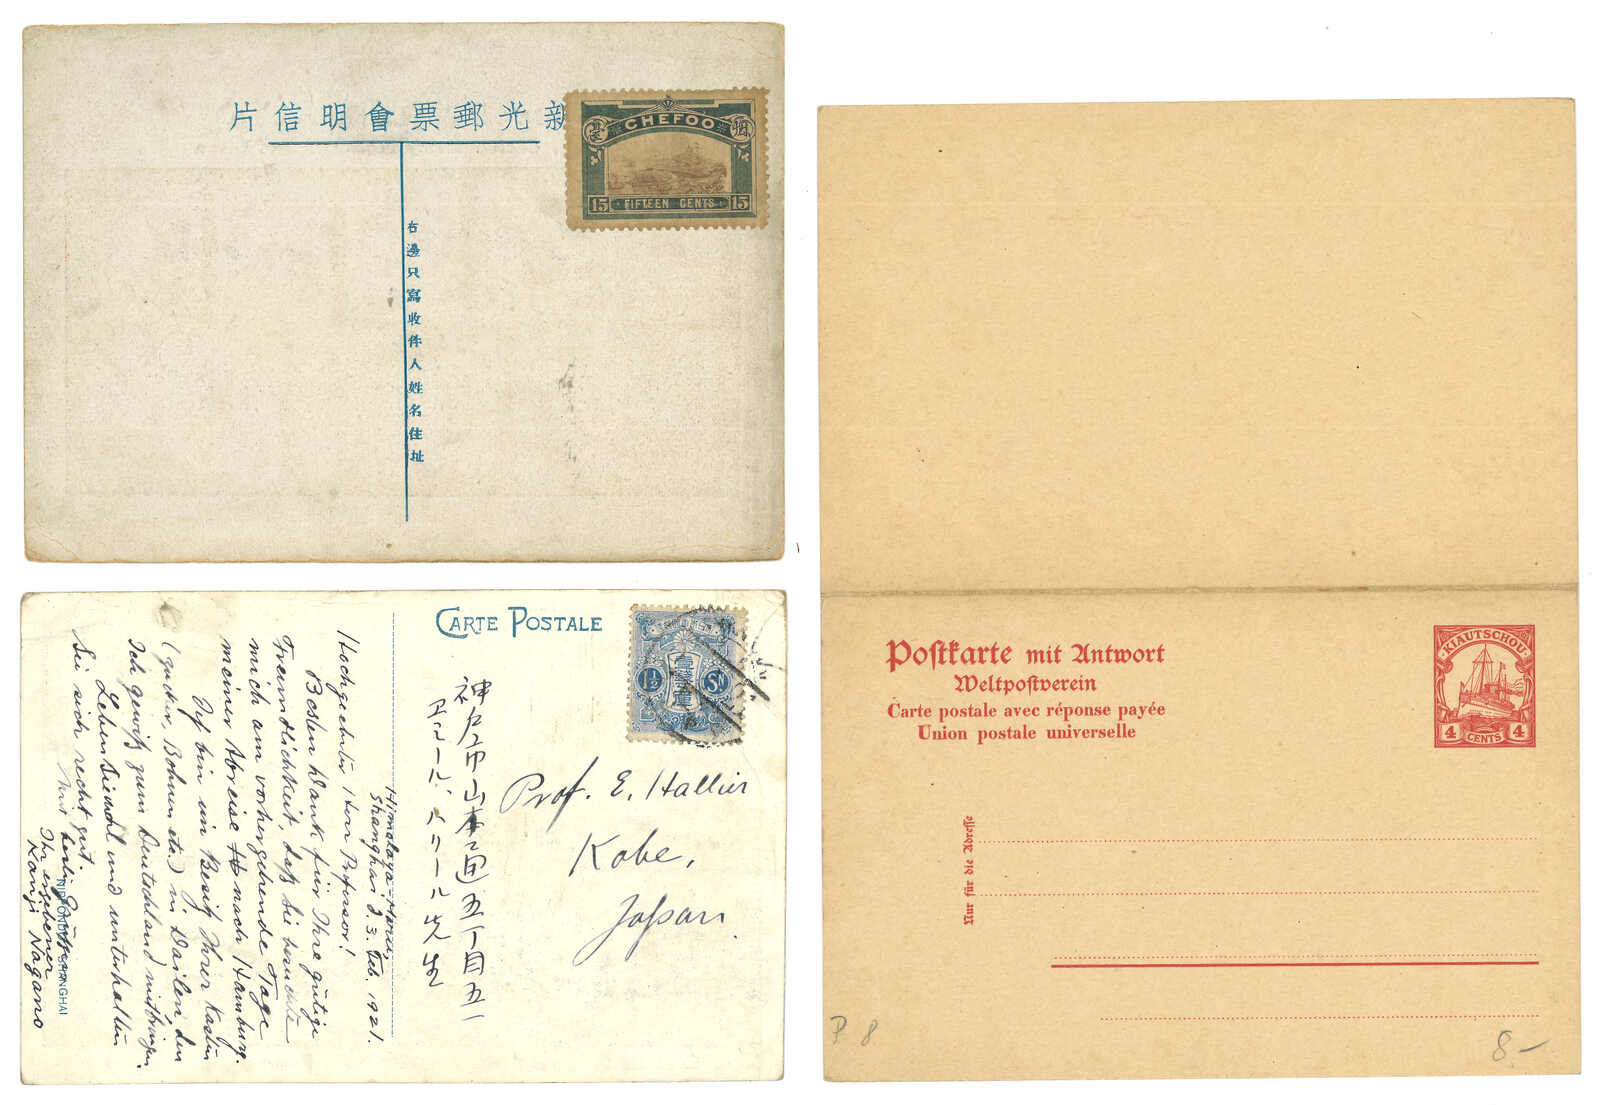 新光郵票會明信片
CHEFOO
15 FIFTEEN CENTS 15
右邊只寫收件人姓名住址
CARTE POSTALE
1½ Sn
神戸市山本通五丁目五一
エミール ハリール先生
Prof. E. Hallier
Kobe,
Japan.
Himalaya-Maru,
Shanghai d. 3. Feb. 1921.
Hochgeehrter Herr Professor!
Besten Dank für Ihre gütige
Freundlichkeit, daß Sie besuchte
mich am vorhergehende Tage
meiner Abreise nach Hamburg.
Ich bin im Besitz Ihrer Karten
(gucken, Bohnen etc.) in Dairen, den
Ich gewiß zum Deutschland mitbringen.
Leben Sie wohl und unterhalten
Sie sich recht gut.
Mit Grüßen
Ihr ergebener
Kanji Nagano
SHANGHAI
Postkarte mit Antwort
Weltpostverein
Carte postale avec réponse payée
Union postale universelle
KIAUTSCHOU
4 CENTS 4
Nur für die Adresse
P 8
8-